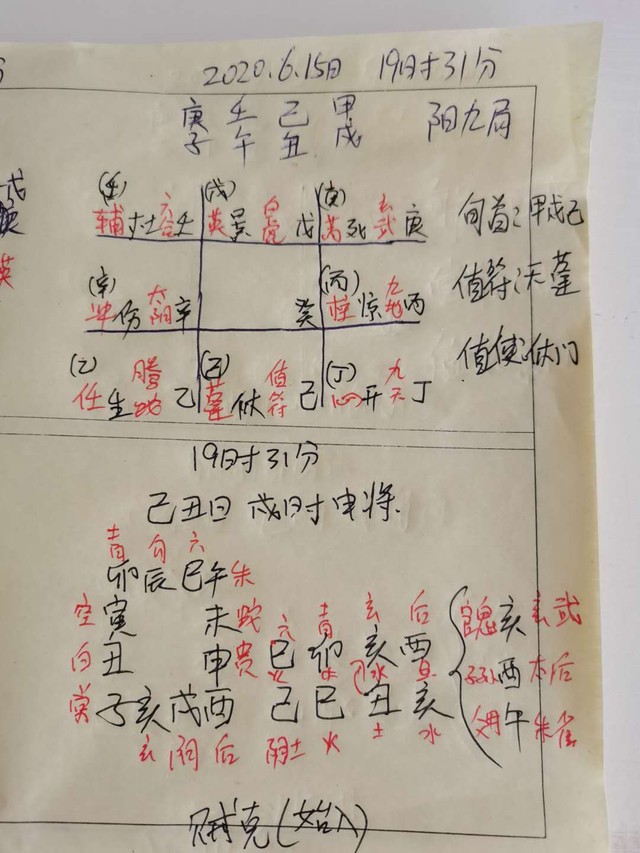 2020.6.15日 19时31分
庚 壬 己 甲
子 午 丑 戌 阳九局
(壬) (戊) (庚)
辅 杜 六合 壬 英 景 白虎 戊 芮 死 玄武 庚 旬首:甲戌己
(辛) (丙) 值符:天蓬
冲 伤 太阴 辛 癸 柱 惊 九地 丙
(乙) (己) (丁) 值使:休门
任 生 腾蛇 乙 蓬 休 值符 己 心 开 九天 丁
19时31分
己丑日 戌时 申将
青 勾 六
卯 辰 巳 午 朱
空 寅 未 蛇 六 青 玄 后 官鬼 亥 玄武
白 丑 申 贵 巳 卯 亥 酉 子孙 酉 后
子 亥 戌 酉 己 巳 丑 亥 父母 午 朱雀
玄 阴 后 阴土 火 土 水
贼克(始入)